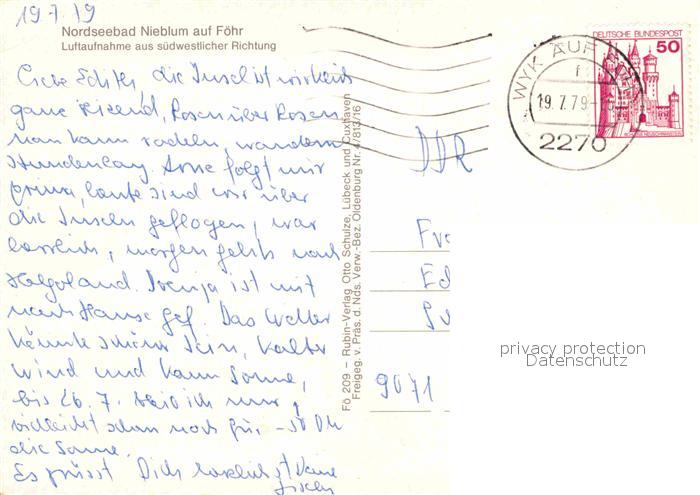 19.7.79
Nordseebad Nieblum auf Föhr
Luftaufnahme aus südwestlicher Richtung
die Insel ist wirklich
ganz reizend, Rosen über Rosen
man kann radeln, wandern
stundenlang. folgt mir
prima, heute sind wir über
die Inseln geflogen, war
herrlich, morgen gehts nach
Helgoland. ist mit
nach Hause gef. Das Wetter
könnte schöner sein, kalter
Wind und kaum Sonne,
bis 26.7. ich nun,
vielleicht
die Sonne.
Es grüsst Dich herzlichst Deine
Fö 209 – Rubin-Verlag Otto Schulze, Lübeck und Cuxhaven
Freigeg. v. Präs. d. Nds. Verw.-Bez. Oldenburg Nr. 4/813/16
WYK AUF
19.7.79
2270
DEUTSCHE BUNDESPOST
50
DDR
Fr
Ed
9071
privacy protection
Datenschutz